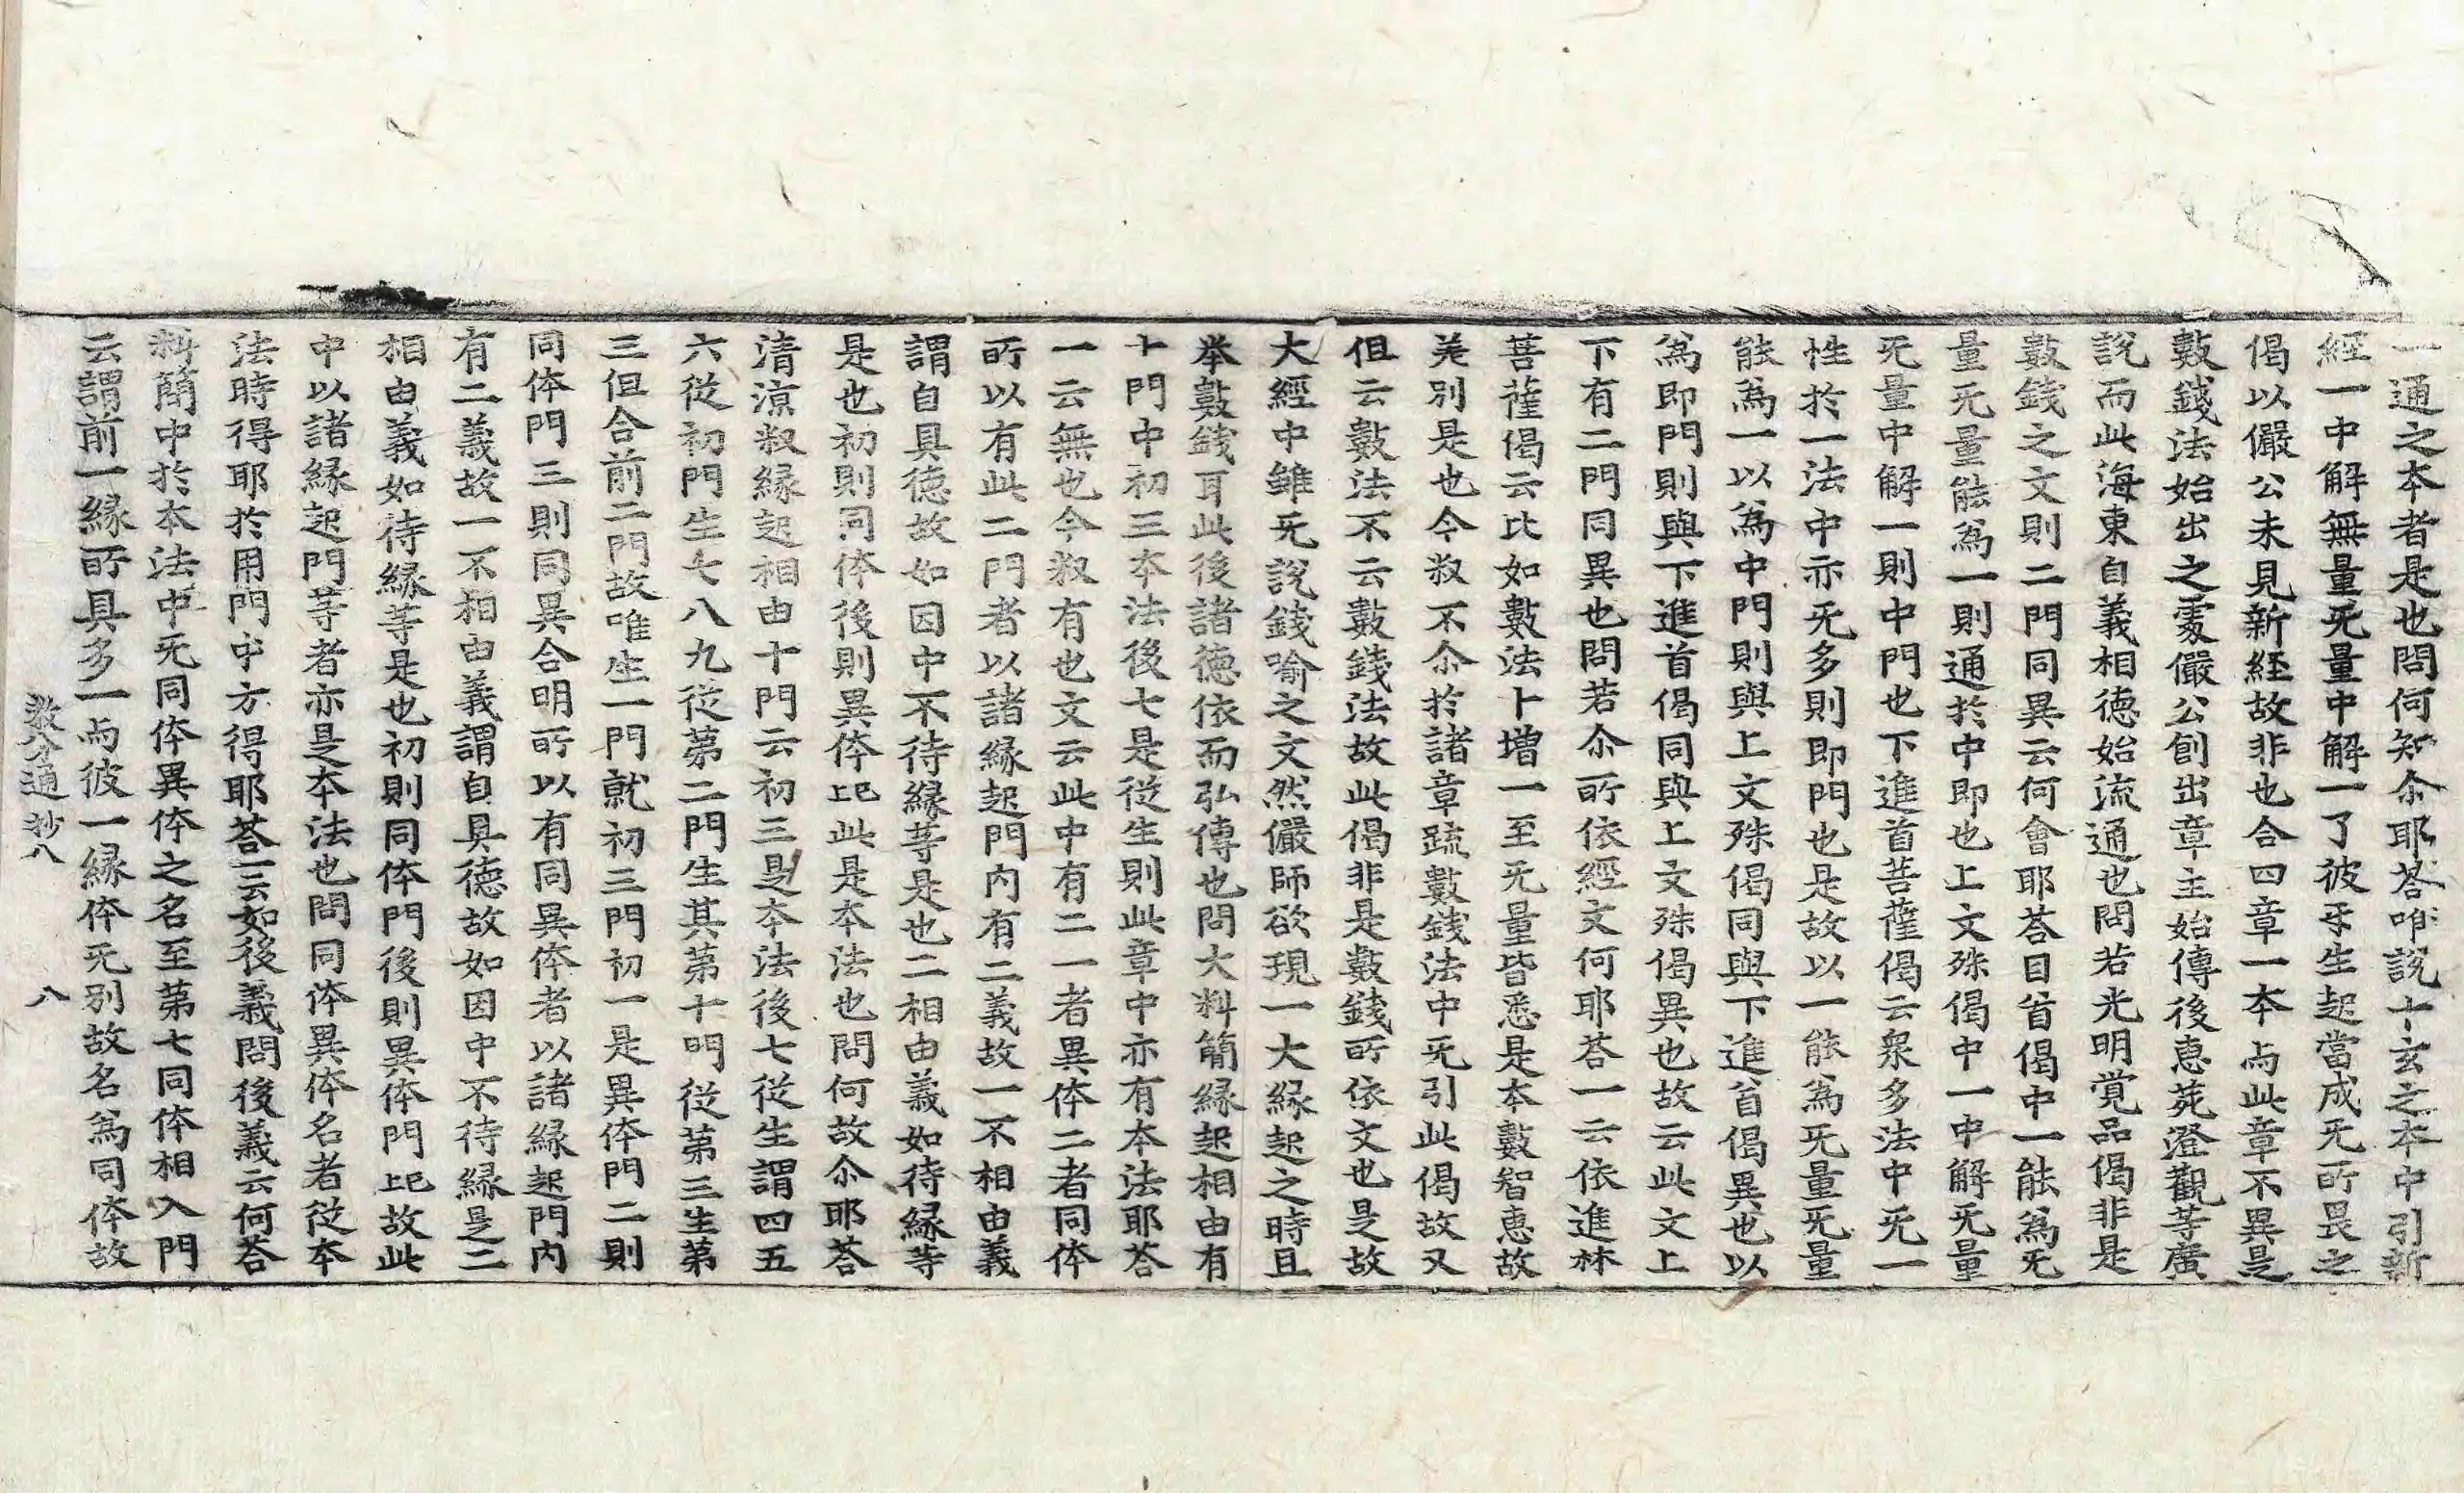 一通之本者是也問何知尒耶荅唯說十玄之本中引新
經一中解無量旡量中解一了彼㸦生起當成旡所畏之
偈以儼公未見新經故非也合四章一本与此章不異是
數錢法始出之處儼公創出章主始傳後惠苑澄觀等廣
說而此海東自義相德始流通也問若光明覚品偈非是
數錢之文則二門同異云何會耶荅目首偈中一能為旡
量旡量能為一則通於中即也上文殊偈中一中解旡量
旡量中解一則中門也下進首菩薩偈云衆多法中旡一
性於一法中亦旡多則即門也是故以一能為旡量旡量
能為一以為中門則與上文殊偈同與下進首偈異也以
為即門則與下進首偈同與上文殊偈異也故云此文上
下有二門同異也問若尒所依經文何耶荅一云依進林
菩薩偈云比如數法卜増一至旡量皆悉是本數智惠故
羌別是也今叙不尒於諸章䟽數錢法中旡引此偈故又
但云數法不云數錢法故此偈非是數錢所依文也是故
大經中雖旡說錢喻之文然儼師欲現一大縁起之時且
举數錢耳此後諸徳依而弘傳也問大料簡縁起相由有
十門中初三本法後七是從生則此章中亦有本法耶荅
一云無也今叙有也文云此中有二一者異体二者同体
所以有此二門者以諸縁起門内有二義故一不相由義
謂自具徳故如因中不待縁等是也二相由義如待縁等
是也初則同体後則異体巴此是本法也問何故尒耶荅
清涼叙縁起相由十門云初三是本法後七從生謂四五
六從初門生七八九從第二門生其第十門從第三生第
三但合前二門故唯生一門就初三門初一是異体門二則
同体門三則同異合明所以有同異体者以諸縁起門内
有二義故一不相由義謂自具徳故如因中不待縁是二
相由義如待縁等是也初則同体門後則異体門巴故此
中以諸縁起門等者亦是本法也問同体異体名者從本
法時得耶於用門中方得耶荅二云如後義問後義云何荅
料簡中於本法中旡同体異体之名至第七同体相入門
云謂前一縁所具多一与彼一縁体旡別故名為同体故
教分通 抄八 八